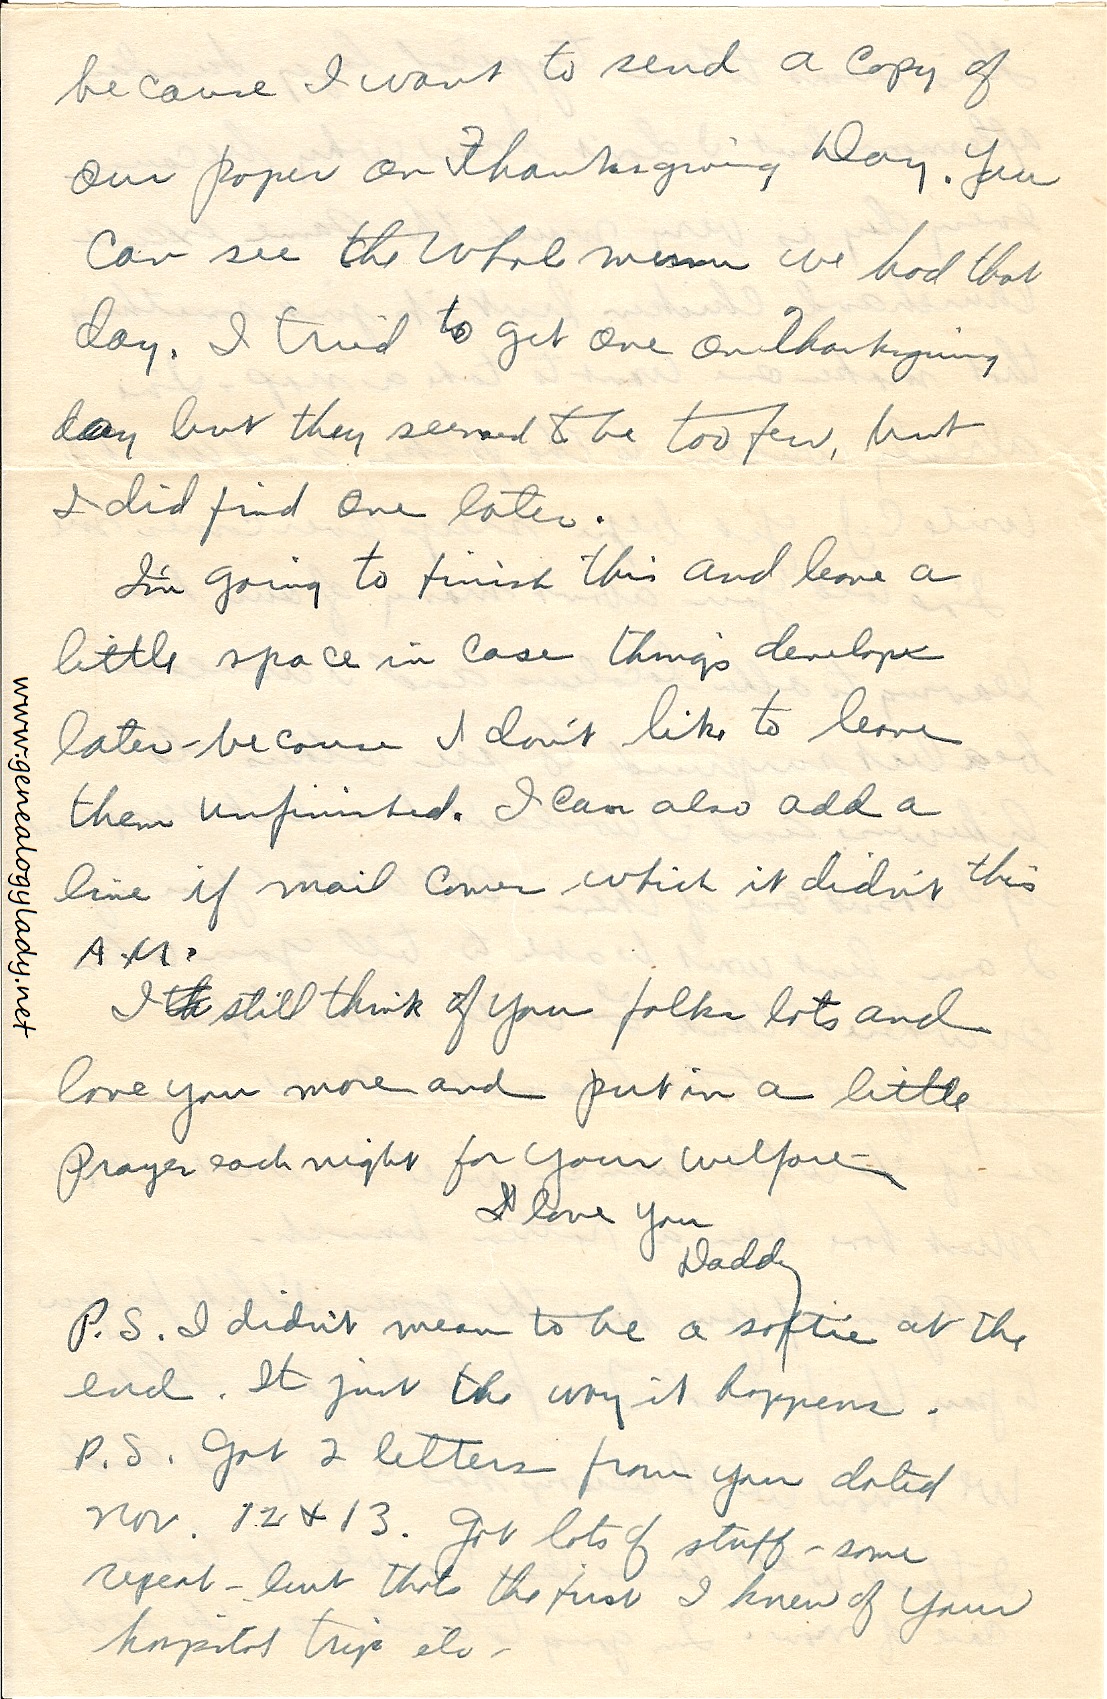 because I want to send a copy of
our paper on Thanksgiving Day. You
can see the whole menu we had that
day. I tried to get one on Thanksgiving
day but they seemed to be too few, but
I did find one later.
I'm going to finish this and leave a
little space in case things develope
later - because I don't like to leave
them unfinished. I can also add a
line if mail comes which it didn't this
A.M.
I still think of you folks lots and
love you more and put in a little
prayer each night for your welfare
I love you
Daddy
P.S. I didn't mean to be a softie at the
end. It just the way it happens.
P.S. Got 2 letters from you dated
Nov. 12 & 13. Got lots of stuff - some
repeat - but thats the first I knew of your
hospital trip etc -
www.genealogylady.net